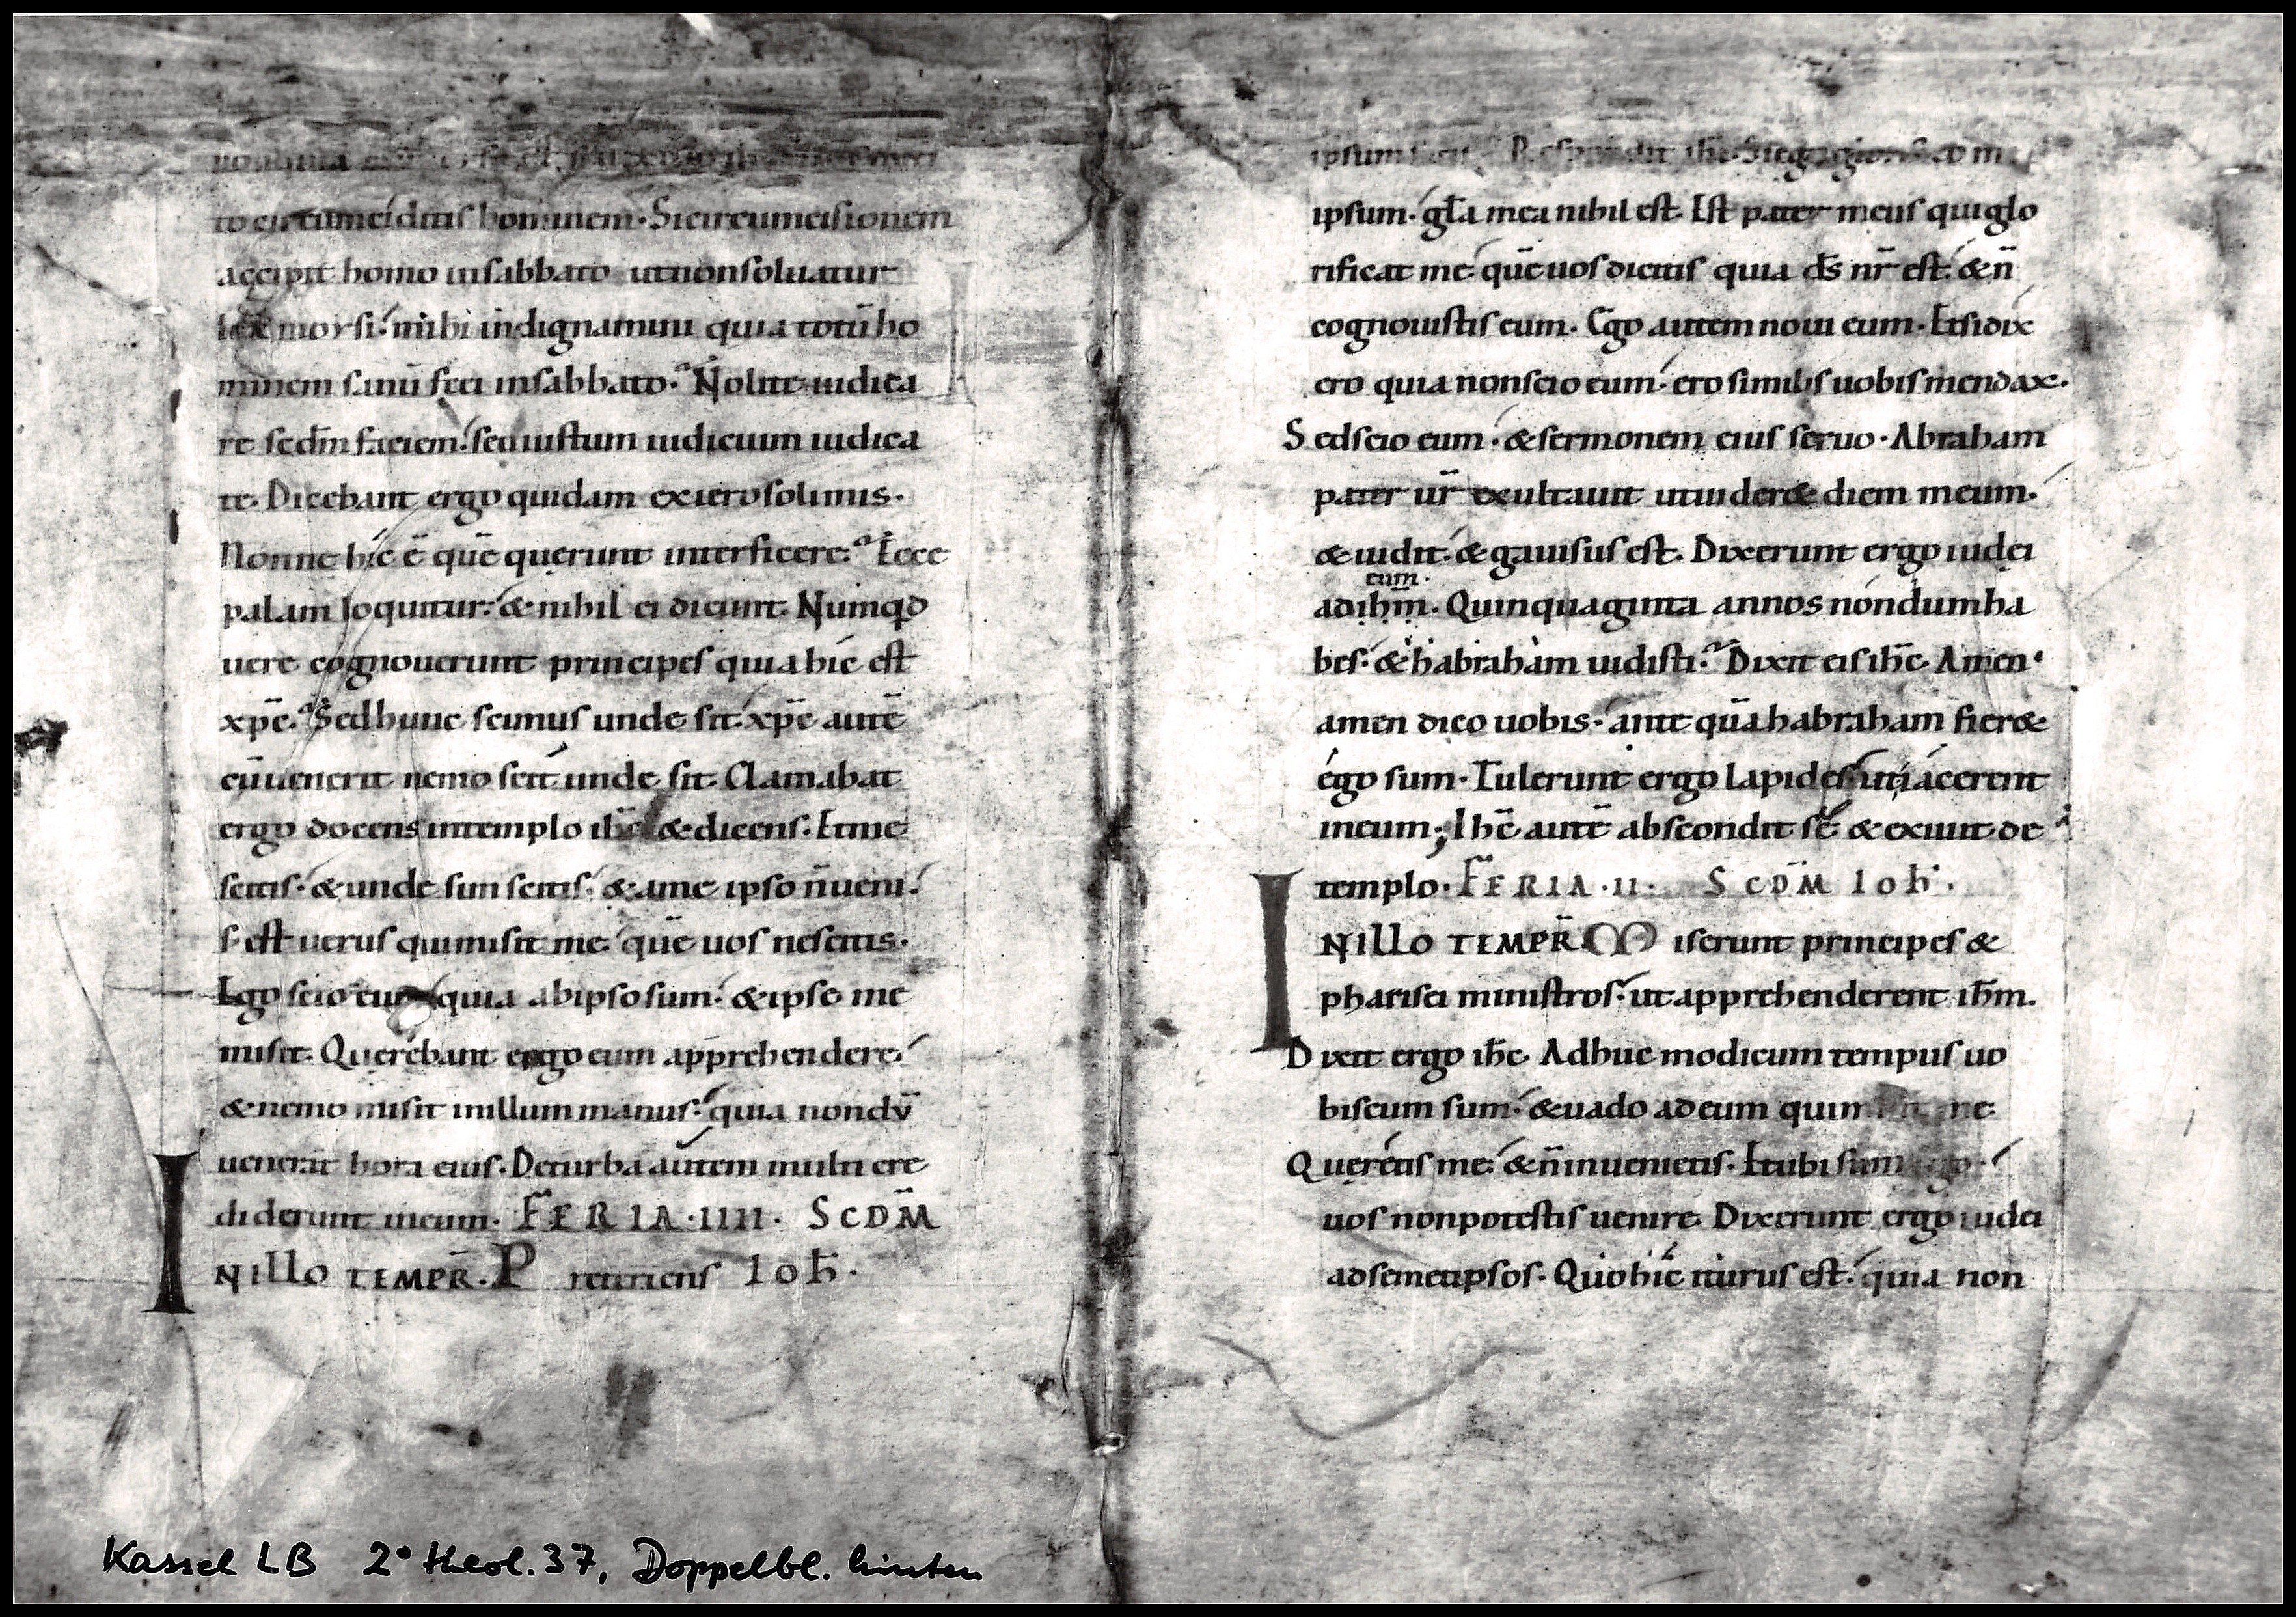 to circumciditis hominem. Si circumcisionem
accipit homo insabbato utnonsoluatur
lex moysi. mihi indignamini quia totū ho
minem sanū feci insabbato. Nolite iudica
re scdm̄ faciem. sed iustum iudicium iudica
te. Dicebant ergo quidam exierosolimis.
Nonne hic ē quē querunt interficere. Ecce
palam loquitur. & nihil ei dicunt. Numqd
uere cognouerunt principes quia hic est
xpē. Sed hunc scimus unde sit. xpē autē
cū uenerit nemo scit unde sit. Clamabat
ergo docens intemplo ihē & dicens. Et me
scitis. & unde sim scitis. & ame ipso n̄ ueni.
s. est uerus qui misit me. quē uos nescitis.
Ego scio eum quia abipso sum. & ipse me
misit. Querebant ergo eum apprehendere.
& nemo misit inillum manus. quia nondū
uenerat hora eius. Deturba autem multi cre
diderunt ineum. FERIA .IIII. SCDM̄
INILLO TEMPR̄. P reteriens Ioh̄.
ipsum Respondit ihē. Si ego glorifico me
ipsum. gl̄a mea nihil est. Est pater meus qui glo
rificat me. quē uos dicitis quia ds̄ nr̄ est. & n̄
cognouistis eum. Ego autem noui eum. Et si dix
ero quia nonscio eum. ero similis uobis mendax.
Sed scio eum. & sermonem eius seruo. Abraham
pater ur̄ exultauit utuider& diem meum.
& uidit. & gauisus est. Dixerunt ergo iudei
eum.
adihm̄. Quinquaginta annos nondum ha
bes. & habraham uidisti. Dixit eis ihē. Amen.
amen dico uobis. ante quā habraham fier&
ego sum. Tulerunt ergo lapides. ut iacerent
ineum; Ihē autē abscondit sē & exiuit de
templo. FERIA .II. SCDM̄ Ioh̄.
INILLO TEMPR̄. M iserunt principes &
pharisei ministros. ut apprehenderent ihm̄.
Dixit ergo ihē. Adhuc modicum tempus uo
biscum sum. & uado adeum qui me.
Queretis me. & n̄ inuenietis. Et ubi sum ego.
uos nonpotestis uenire. Dixerunt ergo iudei
adsemetipsos. Quo hic iturus est. quia non
Kassel LB 2° theol. 37, Doppelbl. hinten